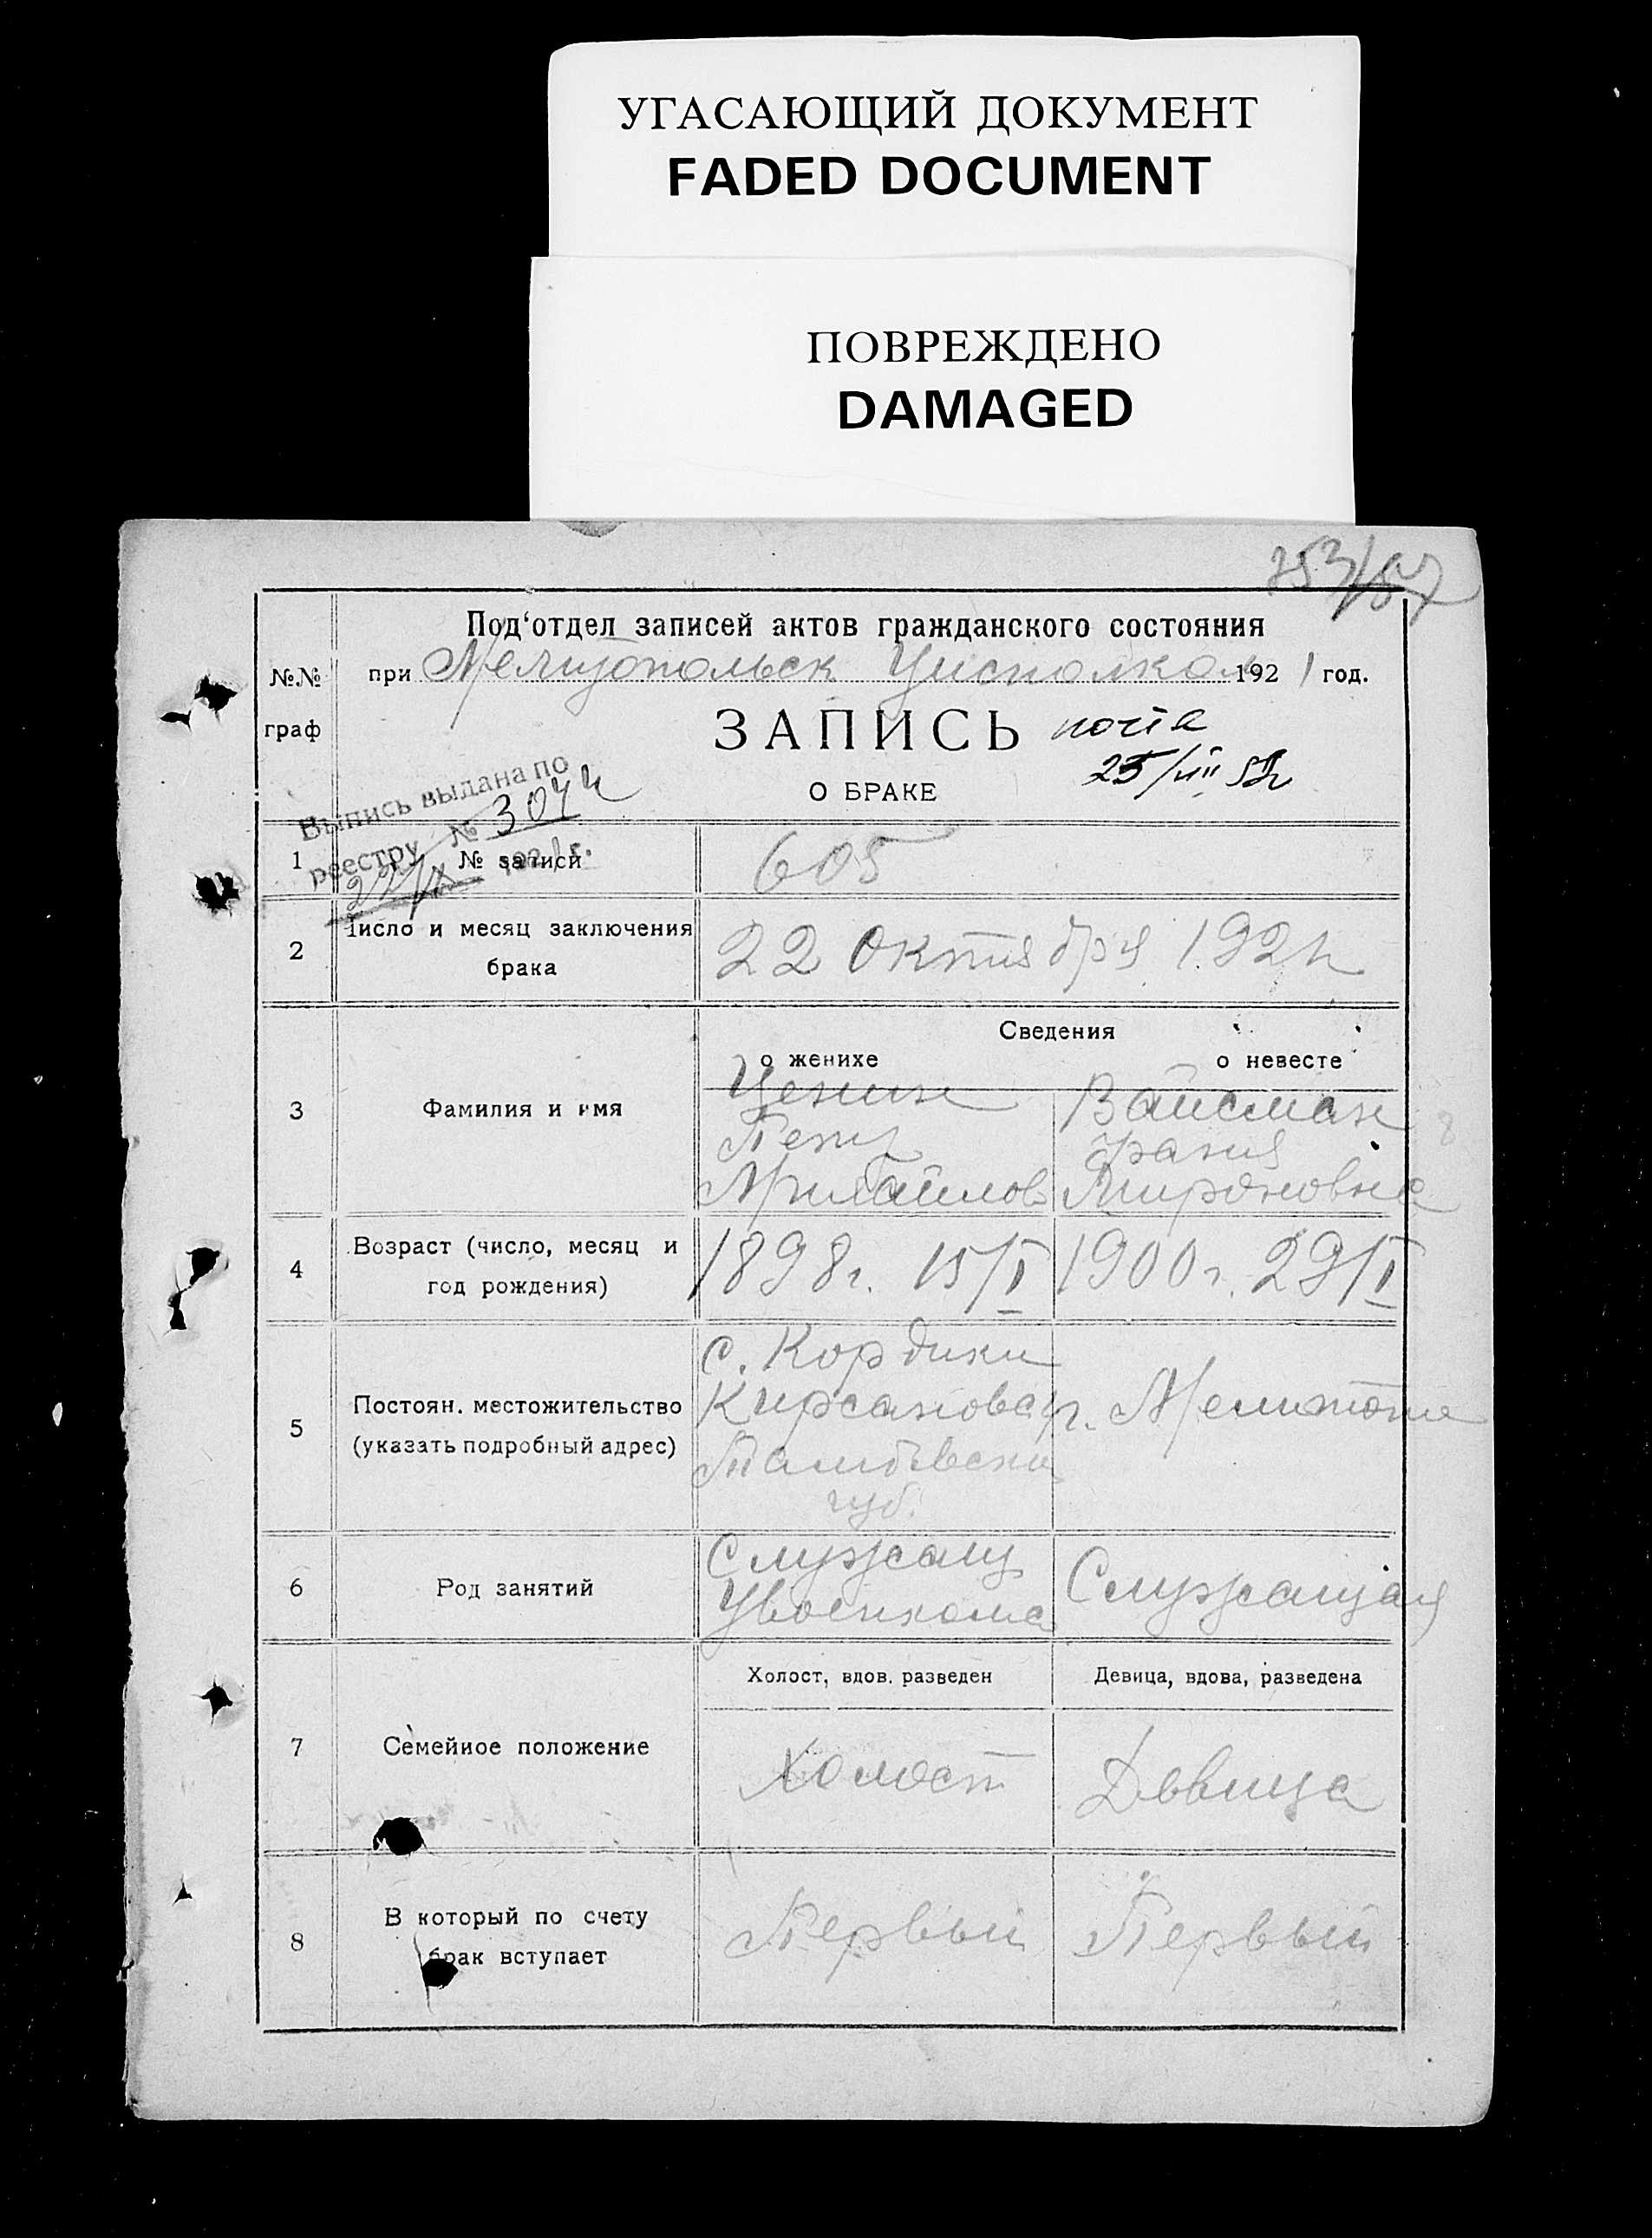 УГАСАЮЩИЙ ДОКУМЕНТ
FADED DOCUMENT
ПОВРЕЖДЕНО
DAMAGED
Под‘отдел записей актов гражданского состояния
№№ граф
при Мелитопольск Уисполком 1921 год.
ЗАПИСЬ
25/VIII
О БРАКЕ
Выпись выдана по
реестру №
1 № записи 605
2 Число и месяц заключения брака 22 Октября 1921
Сведения
о женихе о невесте
3 Фамилия и имя
Ценин
Петр
Михайлов
Вайсман
Фаня
Мироновна
4 Возраст (число, месяц и год рождения)
1898г. 15/I
1900г. 29/I
5 Постоян. местожительство (указать подробный адрес)
с.
Кирсановск
Тамбовской
губ.
г. Мелитополь
6 Род занятий
Служащ
Увоенкома
Служащая
Холост, вдов. разведен
Девица, вдова, разведена
7 Семейное положение
Холост
Девица
8 В который по счету брак вступает
Первый
Первый